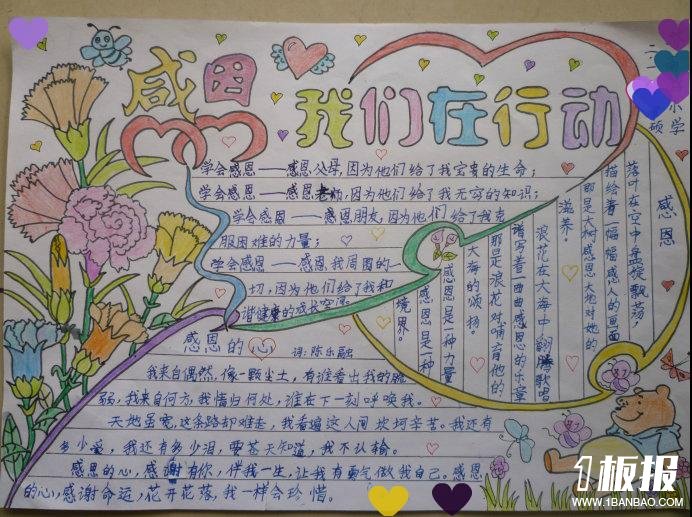 感恩
我们在行动
二
小学
硕
学会感恩——感恩父母,因为他们给了我宝贵的生命;
学会感恩——感恩老师,因为他们给了我无穷的知识;
学会感恩——感恩朋友,因为他们给了我克
服困难的力量;
学会感恩——感恩我周围的一
切,因为他们给了我和
谐健康的成长空间
感恩
落叶在空中盘旋飘荡,
描绘着一幅幅感人的画面
那是大树感恩大地对她的
滋养。
浪花在大海中翻腾歌唱
谱写着一曲曲感恩的乐章
那是浪花对哺育他的
大海的颂扬。
感恩是一种力量
感恩是一种
境界。
感恩的心 词:陈乐融
我来自偶然,像一颗尘土,有谁看出我的脆
弱,我来自何方,我情归何处,谁在下一刻呼唤我。
天地虽宽,这条路却难走,我看遍这人间坎坷辛苦。我还有
多少爱,我还有多少泪,要苍天知道,我不认输。
感恩的心,感谢有你,伴我一生,让我有勇气做我自己。感恩
的心,感谢命运,花开花落,我一样会珍惜。
1板报
WWW.1BANBAO.COM